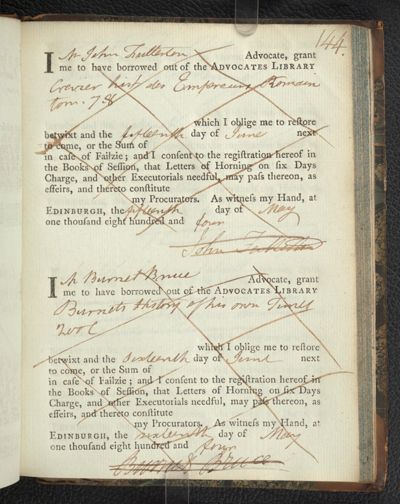 144.
I Mr John Fullerton Advocate, grant
me to have borrowed out of the ADVOCATES LIBRARY
Crevier hist des Empereurs Romain
tom. 7.8
which I oblige me to reſtore
betwixt and the fifteenth day of June next
to come, or the Sum of
in caſe of Failzie; and I conſent to the regiſtration hereof in
the Books of Seſſion, that Letters of Horning on ſix Days
Charge, and other Executorials needful, may paſs thereon, as
effeirs, and thereto conſtitute
my Procurators. As witneſs my Hand, at
EDINBURGH, the fifteenth day of May
one thouſand eight hundred and four
John Fullerton
I Mr Burnet Bruce Advocate, grant
me to have borrowed out of the ADVOCATES LIBRARY
Burnets History of his own Times
2 vol
which I oblige me to reſtore
betwixt and the Sixteenth day of June next
to come, or the Sum of
in caſe of Failzie; and I conſent to the regiſtration hereof in
the Books of Seſſion, that Letters of Horning on ſix Days
Charge, and other Executorials needful, may paſs thereon, as
effeirs, and thereto conſtitute
my Procurators. As witneſs my Hand, at
EDINBURGH, the sixteenth day of May
one thouſand eight hundred and four
Burnet Bruce